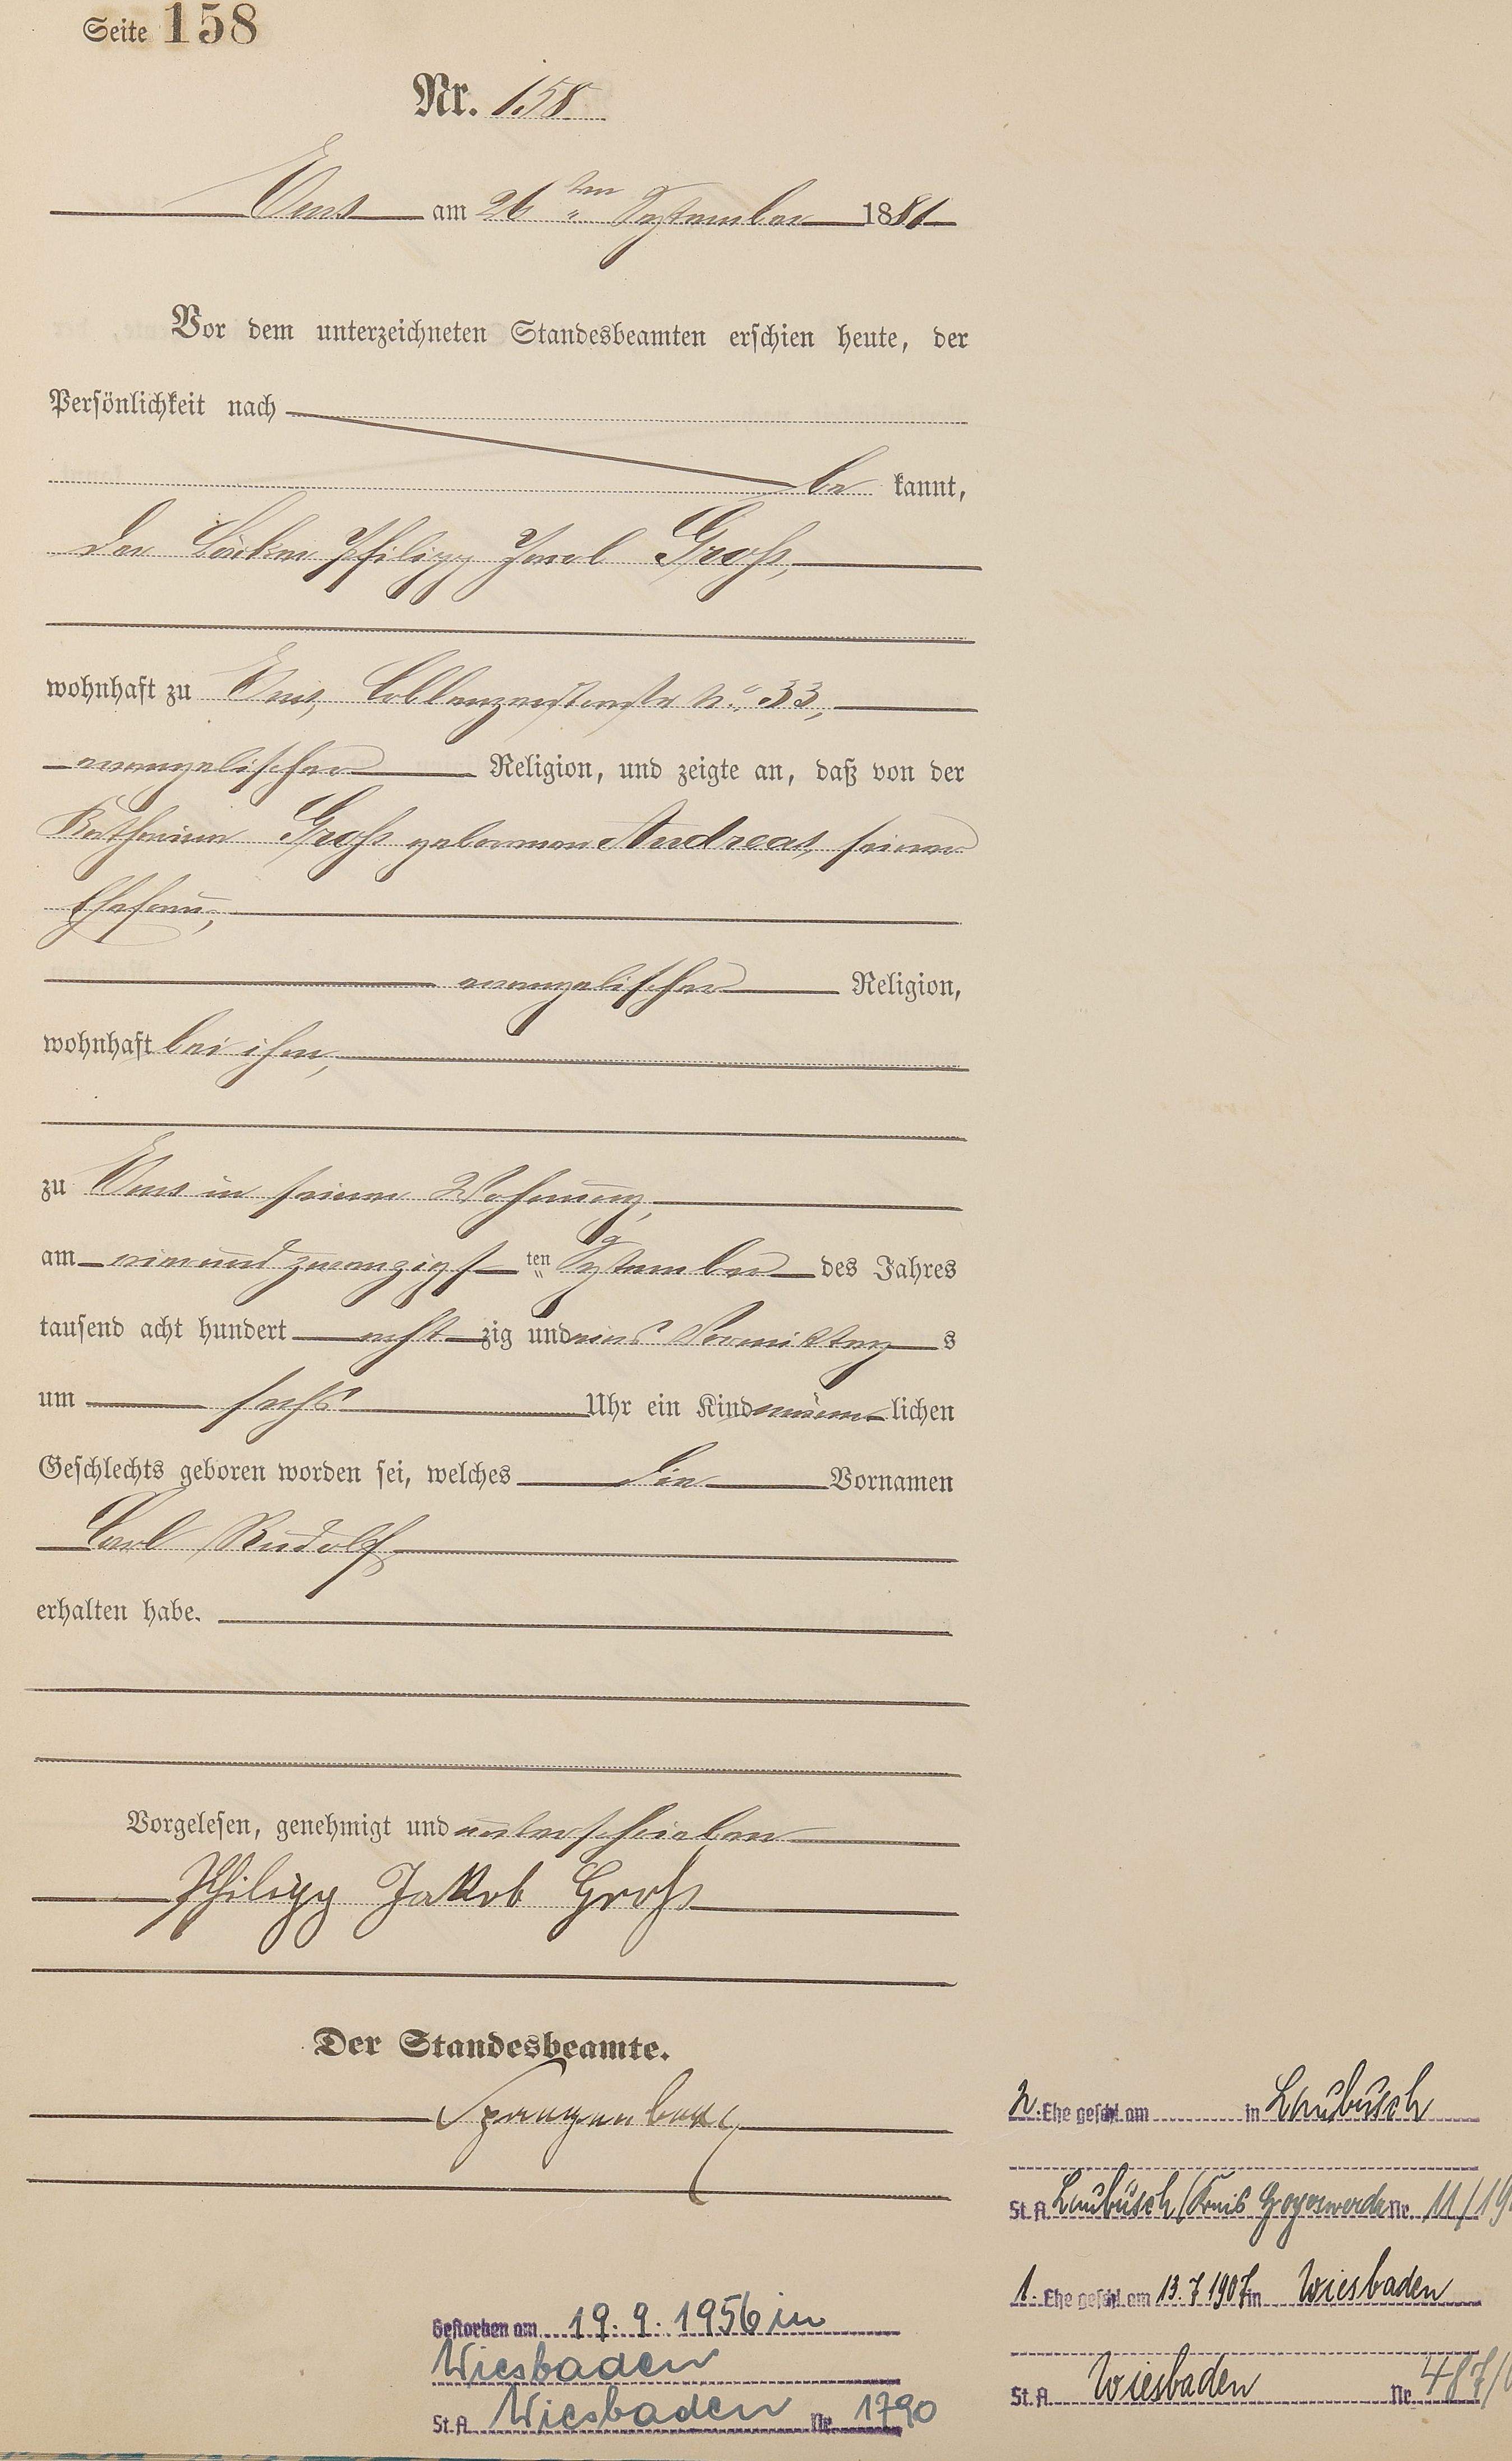 Seite 158
Nr. 158.
Ems am 26ten September 1881
Vor dem unterzeichneten Standesbeamten erschien heute, der
Persönlichkeit nach
be kannt,
der Bäcker Philipp Jacob Groß,
wohnhaft zu Ems, Coblenzerstraße No. 33,
evangelischer Religion, und zeigte an, daß von der
Katharina Groß geborenen Andreas, seiner
Ehefrau,
evangelischer Religion,
wohnhaft bei ihm,
zu Ems in seiner Wohnung,
am ein und zwanzigsten September des Jahres
tausend acht hundert acht zig und eins Vormittag s
um sechs Uhr ein Kind männ lichen
Geschlechts geboren worden sei, welches die Vornamen
Carl Rudolf
erhalten habe.
Vorgelesen, genehmigt und unterschrieben
Philipp Jakob Groß
Der Standesbeamte.
Spangenberg
2. Ehe geschl. am in Laubusch
St. A. Laubusch/Kreis Hoyerswerda Nr. 11/19
1. Ehe geschl. am 13.7.1907 in Wiesbaden
St. A. Wiesbaden Nr. 487/
Gestorben am 19.9.1956 in
Wiesbaden
St. A. Wiesbaden Nr. 1790